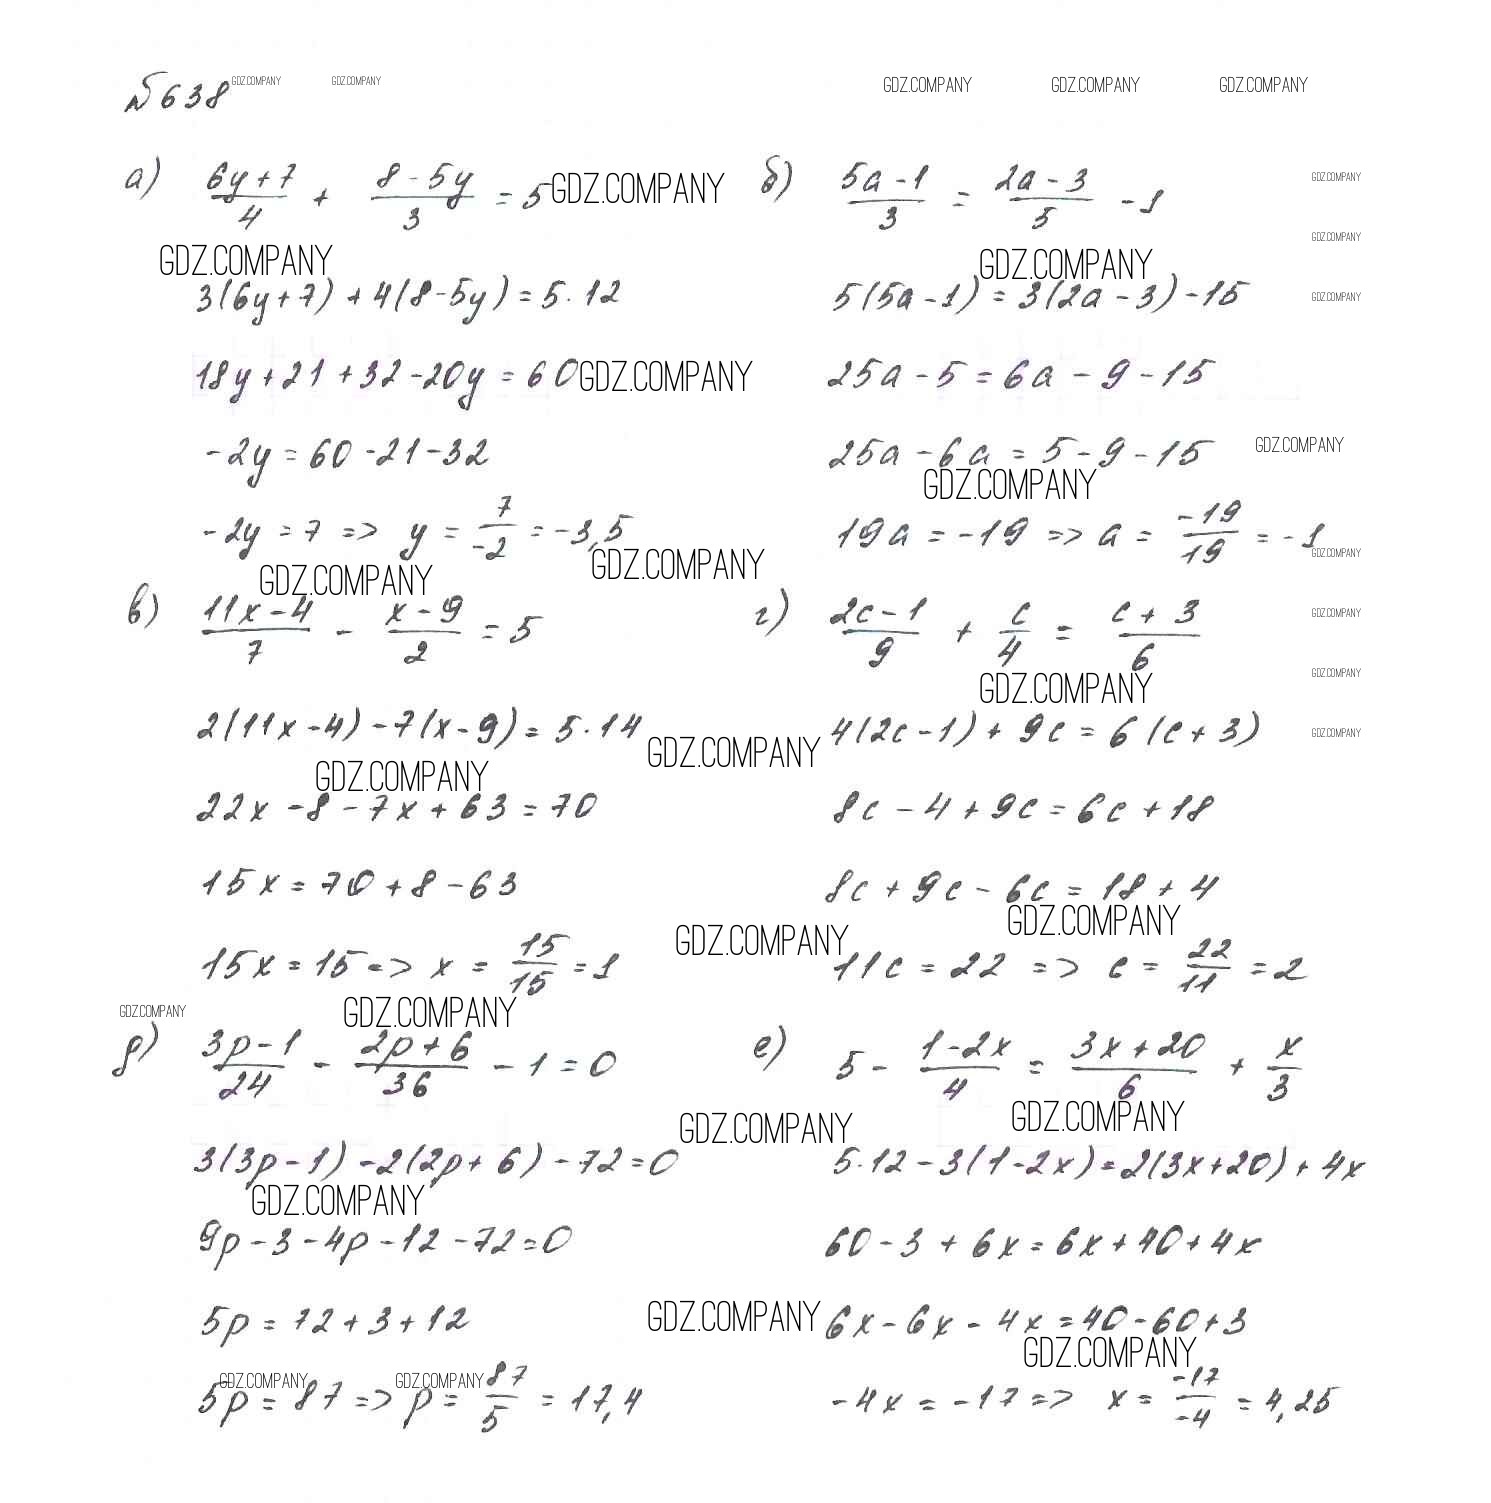 №638
GDZ.COMPANY GDZ.COMPANY GDZ.COMPANY GDZ.COMPANY GDZ.COMPANY
а) (6y+7)/4 + (8-5y)/3 = 5
GDZ.COMPANY
GDZ.COMPANY
3(6y+7)+4(8-5y)=5·12
18y+21+32-20y=60
GDZ.COMPANY
-2y=60-21-32
-2y=7 => y = 7/-2 = -3,5
GDZ.COMPANY
GDZ.COMPANY
б) (5a-1)/3 = (2a-3)/5 - 1
GDZ.COMPANY
GDZ.COMPANY
GDZ.COMPANY
5(5a-1)=3(2a-3)-15
GDZ.COMPANY
25a-5=6a-9-15
25a-6a=5-9-15
GDZ.COMPANY
GDZ.COMPANY
19a=-19 => a = -19/19 = -1
GDZ.COMPANY
в) (11x-4)/7 - (x-9)/2 = 5
2(11x-4)-7(x-9)=5·14
GDZ.COMPANY
GDZ.COMPANY
22x-8-7x+63=70
15x=70+8-63
15x=15 => x = 15/15 = 1
GDZ.COMPANY
GDZ.COMPANY
г) (2c-1)/9 + c/4 = (c+3)/6
GDZ.COMPANY
GDZ.COMPANY
GDZ.COMPANY
4(2c-1)+9c=6(c+3)
GDZ.COMPANY
8c-4+9c=6c+18
8c+9c-6c=18+4
GDZ.COMPANY
11c=22 => c = 22/11 = 2
GDZ.COMPANY
д) (3p-1)/24 - (2p+6)/36 - 1 = 0
GDZ.COMPANY
3(3p-1)-2(2p+6)-72=0
GDZ.COMPANY
9p-3-4p-12-72=0
5p=72+3+12
GDZ.COMPANY
5p=87 => p = 87/5 = 17,4
GDZ.COMPANY GDZ.COMPANY
е) 5 - (1-2x)/4 = (3x+20)/6 + x/3
GDZ.COMPANY
5·12-3(1-2x)=2(3x+20)+4x
60-3+6x=6x+40+4x
6x-6x-4x=40-60+3
GDZ.COMPANY
-4x=-17 => x = -17/-4 = 4,25